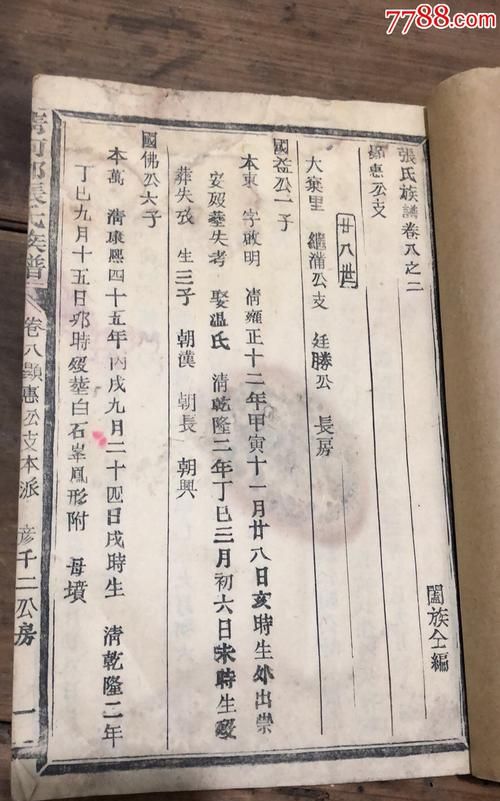 7788.com
張氏族譜卷八之二
闔族仝編
顯惠公支
廿八世
大棠里 繼蒲公支 廷勝公 長房
國益公一子
本東 字啟明 清雍正十二年甲寅十一月廿八日亥時生外出崇
安歿塟失考 娶温氏 清乾隆二年丁巳三月初六日未時生歿
葬失攷 生三子 朝漢 朝長 朝興
國佛公六子
本萬 清康熙四十五年丙戌九月二十四日戌時生 清乾隆二年
丁巳九月十五日卯時歿塟白石峯鳳形附 母墳
清河郡張氏族譜
卷八顯惠公支本派
彦千二公房
一